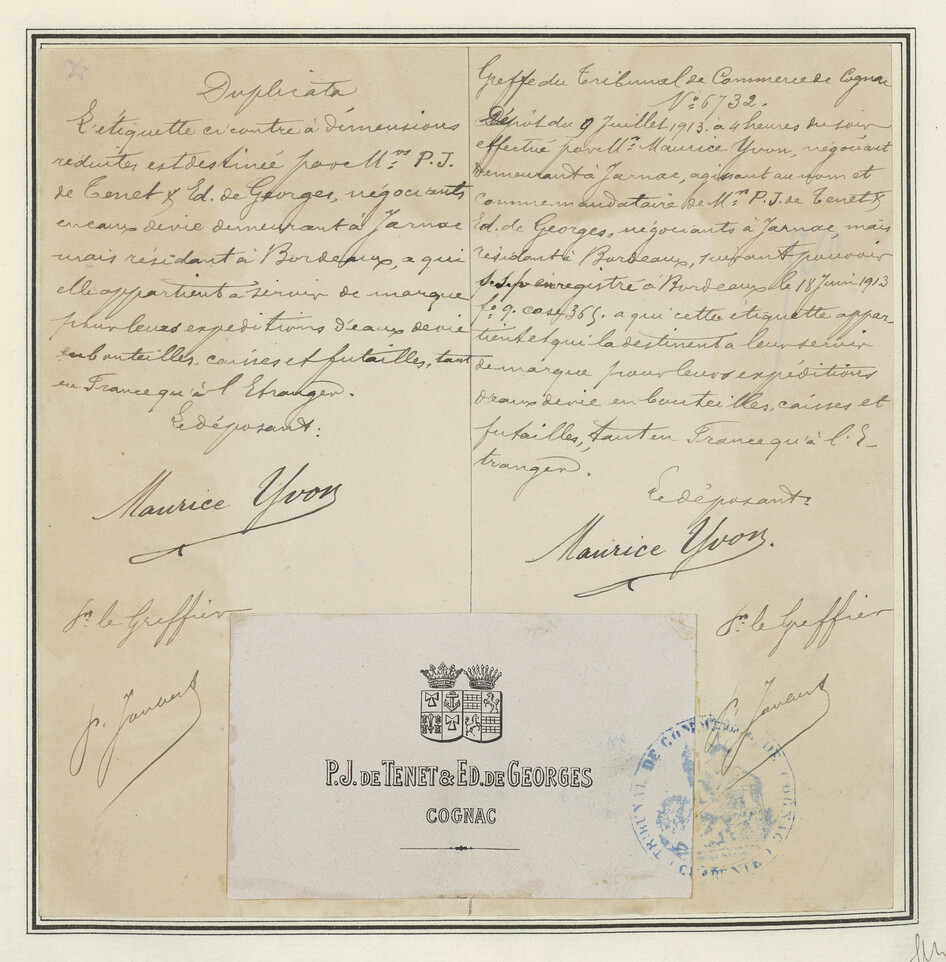 Duplicata
L'étiquette ci contre à dimensions
reduites est destinée par M.rs P. J.
de Tenet & Ed. de Georges, négociants
en eaux de vie demeurant à Jarnac
mais résidant à Bordeaux, a qui
elle appartient à servir de marque
pour leurs expeditions d'eaux de vie
en bouteilles, caisses et futailles, tant
en France qu'à l'Etranger.
Le déposant:
Maurice Yvon
pr. le Greffier
Greffe du Tribunal de Commerce de Cognac
No. 6732.
Dépôt du 9 Juillet 1913 à 4 heures du soir
effectué par Mr. Maurice Yvon, négociant
demeurant à Jarnac, agissant au nom et
comme mandataire de Mrs P. J. de Tenet &
Ed. de Georges, négociants à Jarnac, mais
résidant à Bordeaux, suivant pouvoir
s.s.p enregistré à Bordeaux le 18 Juin 1913
fo 9. case 365. a qui cette étiquette appar-
tient et qui la destinent a leur servir
de marque pour leurs expeditions
d'eaux de vie en bouteilles, caisses et
futailles, tant en France qu'à l'E-
tranger.
Le déposant:
Maurice Yvon.
pr. le Greffier
P. J. DE TENET & ED. DE GEORGES
COGNAC
TRIBUNAL DE COMMERCE DE COGNAC